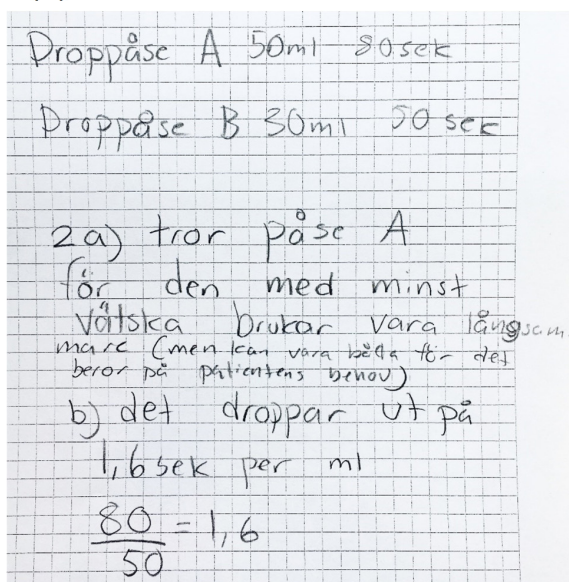 Droppåse A 50ml 80sek
Droppåse B 30ml 50 sek
2a) tror påse A
för den med minst
vätska brukar vara långsam
mare (men kan vara båda för det
beror på patientens behov)
b) det droppar ut på
1,6 sek per ml
80/50 = 1,6